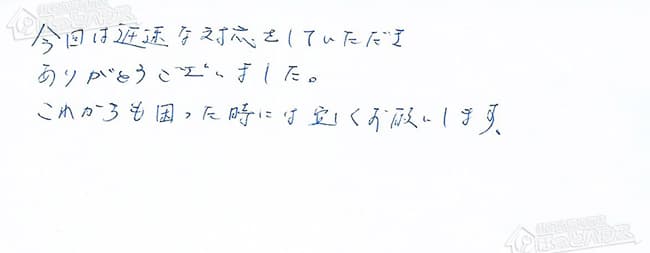 今回は迅速な対応をしていただき
ありがとうございました。
これからも困った時には宜しくお願いします。
ほっとハウス